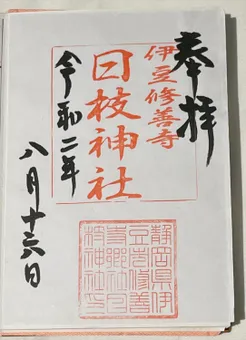 奉拝
伊豆修善寺
日枝神社
令和二年
八月十六日
静岡県伊
修善
寺郷社日
枝神社